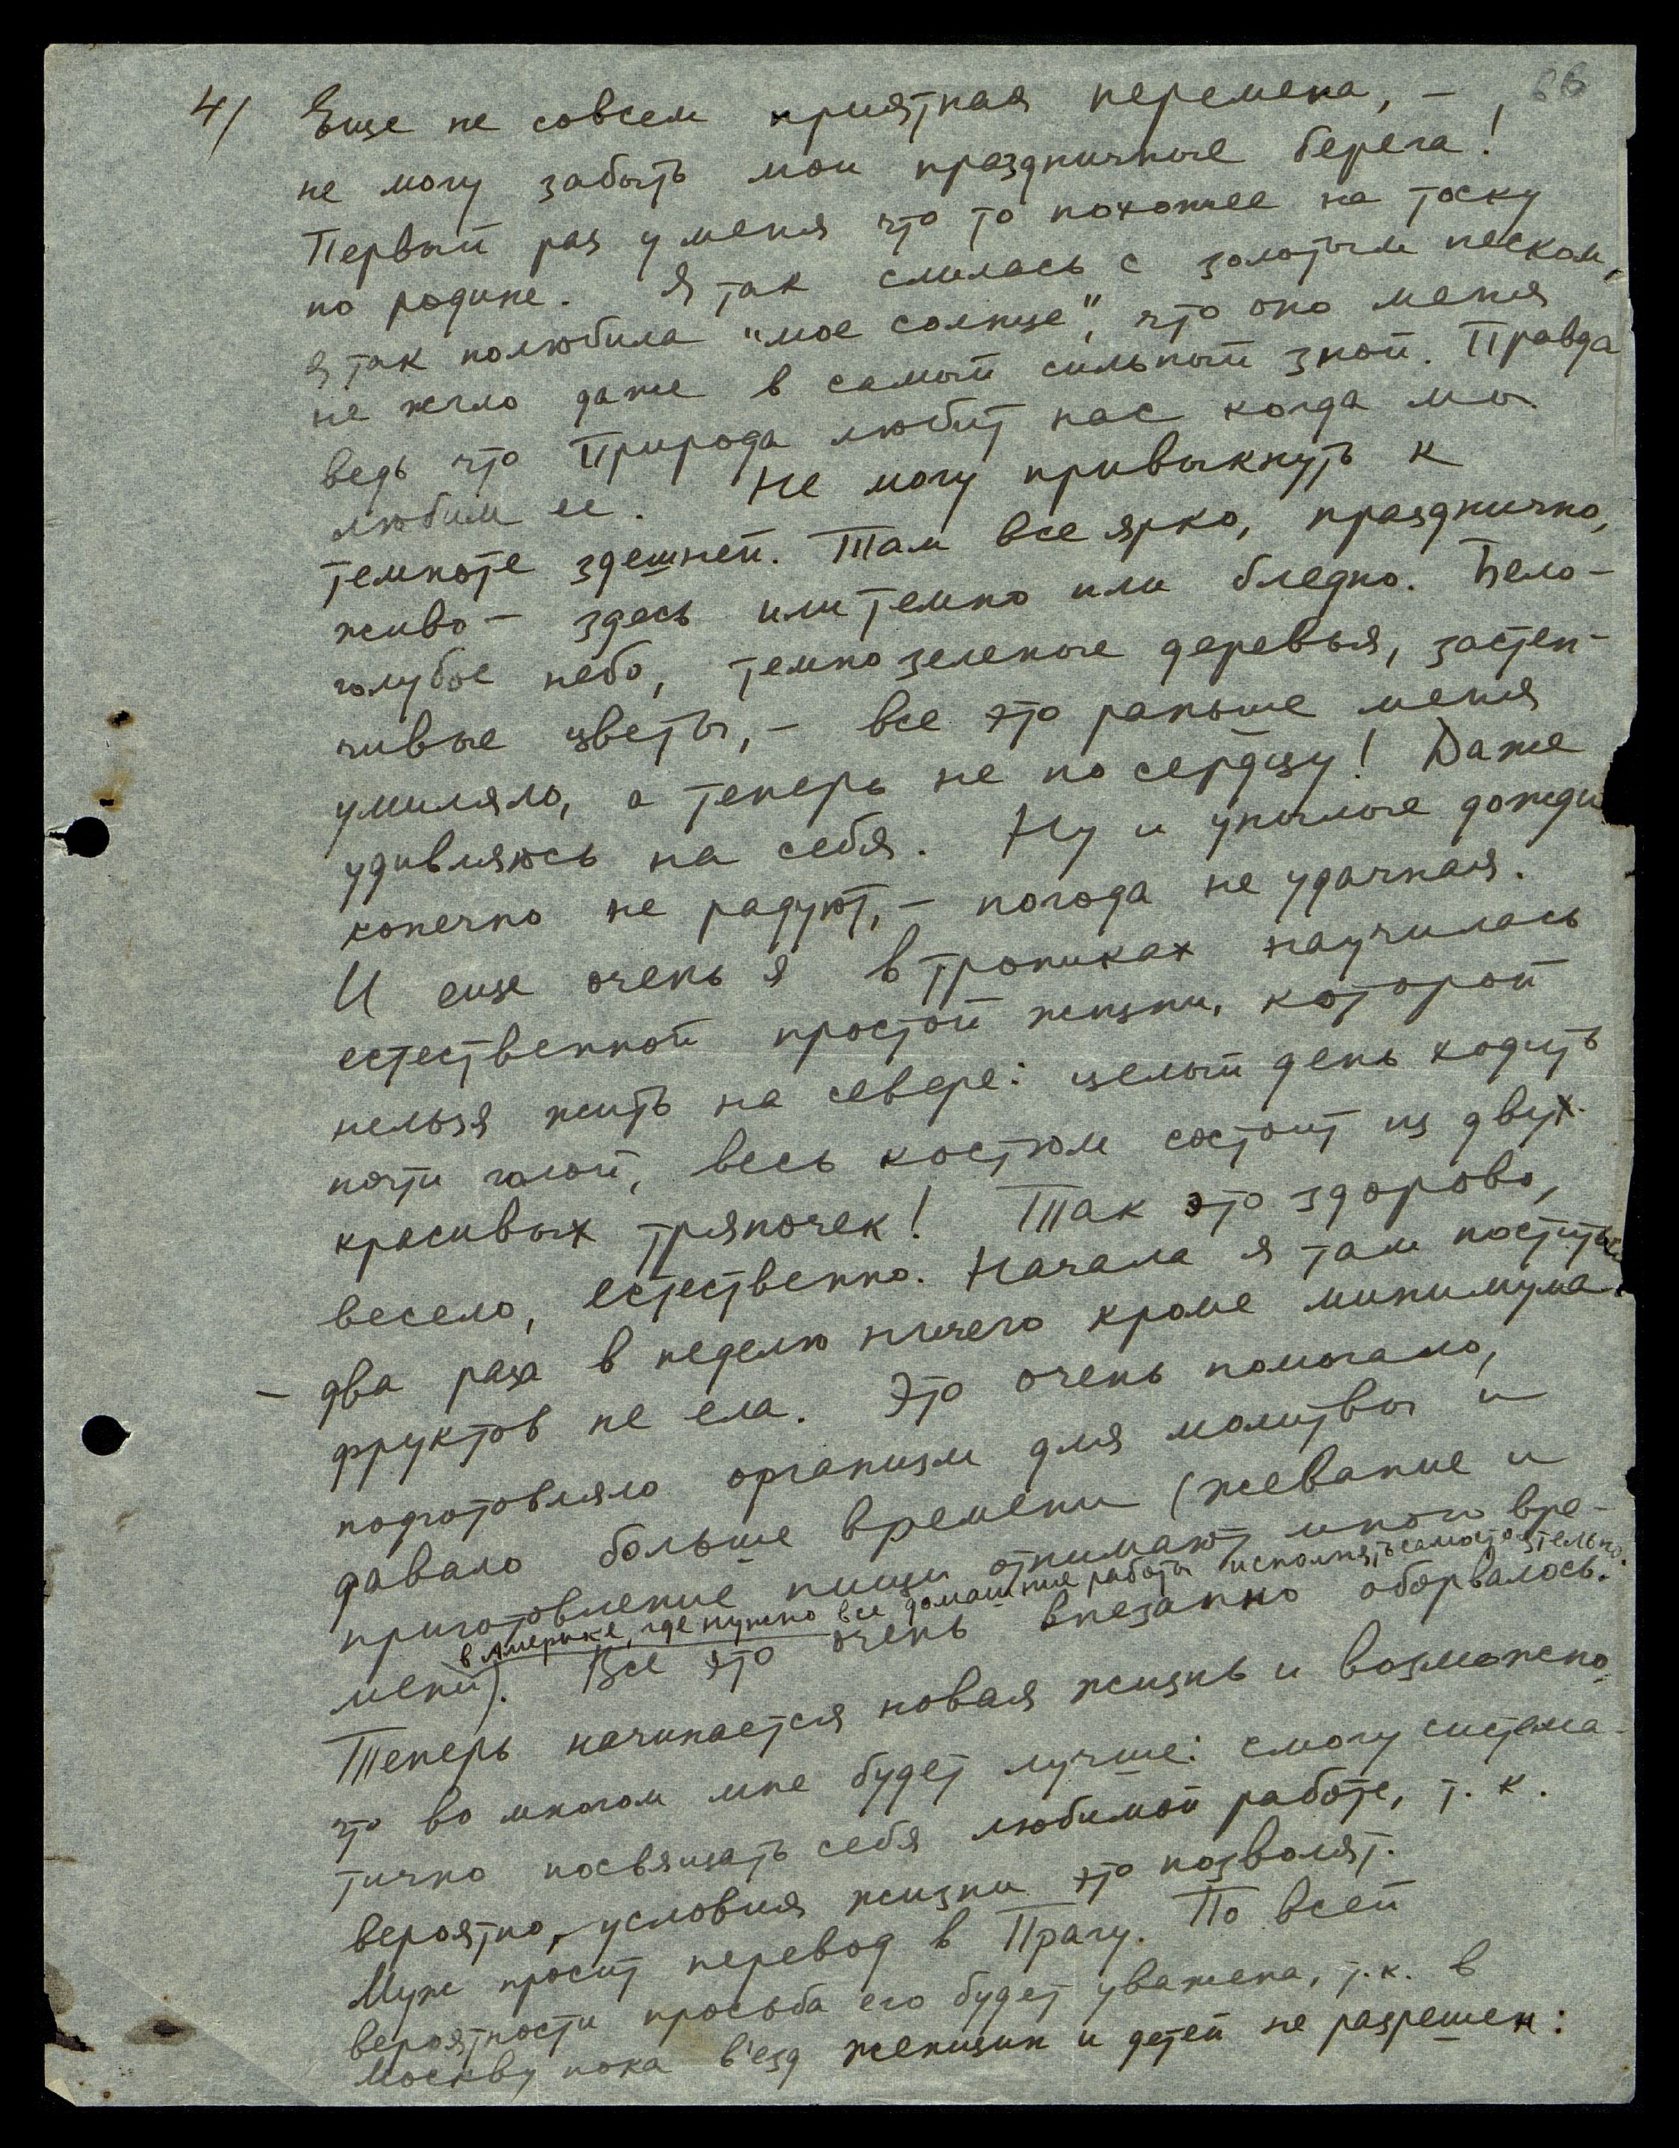 66
4/ Еще не совсем приятная перемена, –
не могу забыть мои праздничные берега!
Первый раз у меня что то похожее на тоску
по родине. Я так слилась с золотым песком,
я так полюбила "мое солнце", что оно меня
не жгло даже в самый сильный зной. Правда
ведь что Природа любит нас когда мы
любим ее. Не могу привыкнуть к
темноте здешней. Там все ярко, празднично,
живо – здесь или темно или бледно. Бело-
голубое небо, темно зеленые деревья, застен-
чивые цветы, – все это раньше меня
умиляло, а теперь не по сердцу! Даже
удивляюсь на себя. Ну и унылые дожди
конечно не радуют, – погода не удачная.
И еще очень я в тропиках научилась
естественной простой жизни, которой
нельзя жить на севере: целый день ходить
почти голой, весь костюм состоит из двух
красивых тряпочек! Так это здорово,
весело, естественно. Начала я там поститься
– два раза в неделю ничего кроме минимума
фруктов не ела. Это очень помогало,
подготовляло организм для молитвы и
давало больше времени (жевание и
приготовление пищи отнимают много вре-
в Америке, где нужно все домашние работы исполнять самостоятельно.
мени). Все это очень внезапно оборвалось.
Теперь начинается новая жизнь и возможно
что во многом мне будет лучше: смогу система-
тично посвящать себя любимой работе, т. к.
вероятно, условия жизни это позволят.
Муж просит перевод в Прагу. По всей
вероятности просьба его будет уважена, т.к. в
Москву пока в'езд женщин и детей не разрешен: